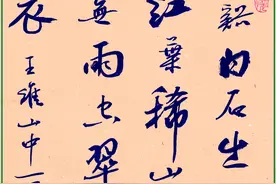 谿白石出
紅葉稀山
無雨空翠
衣 王維山中一